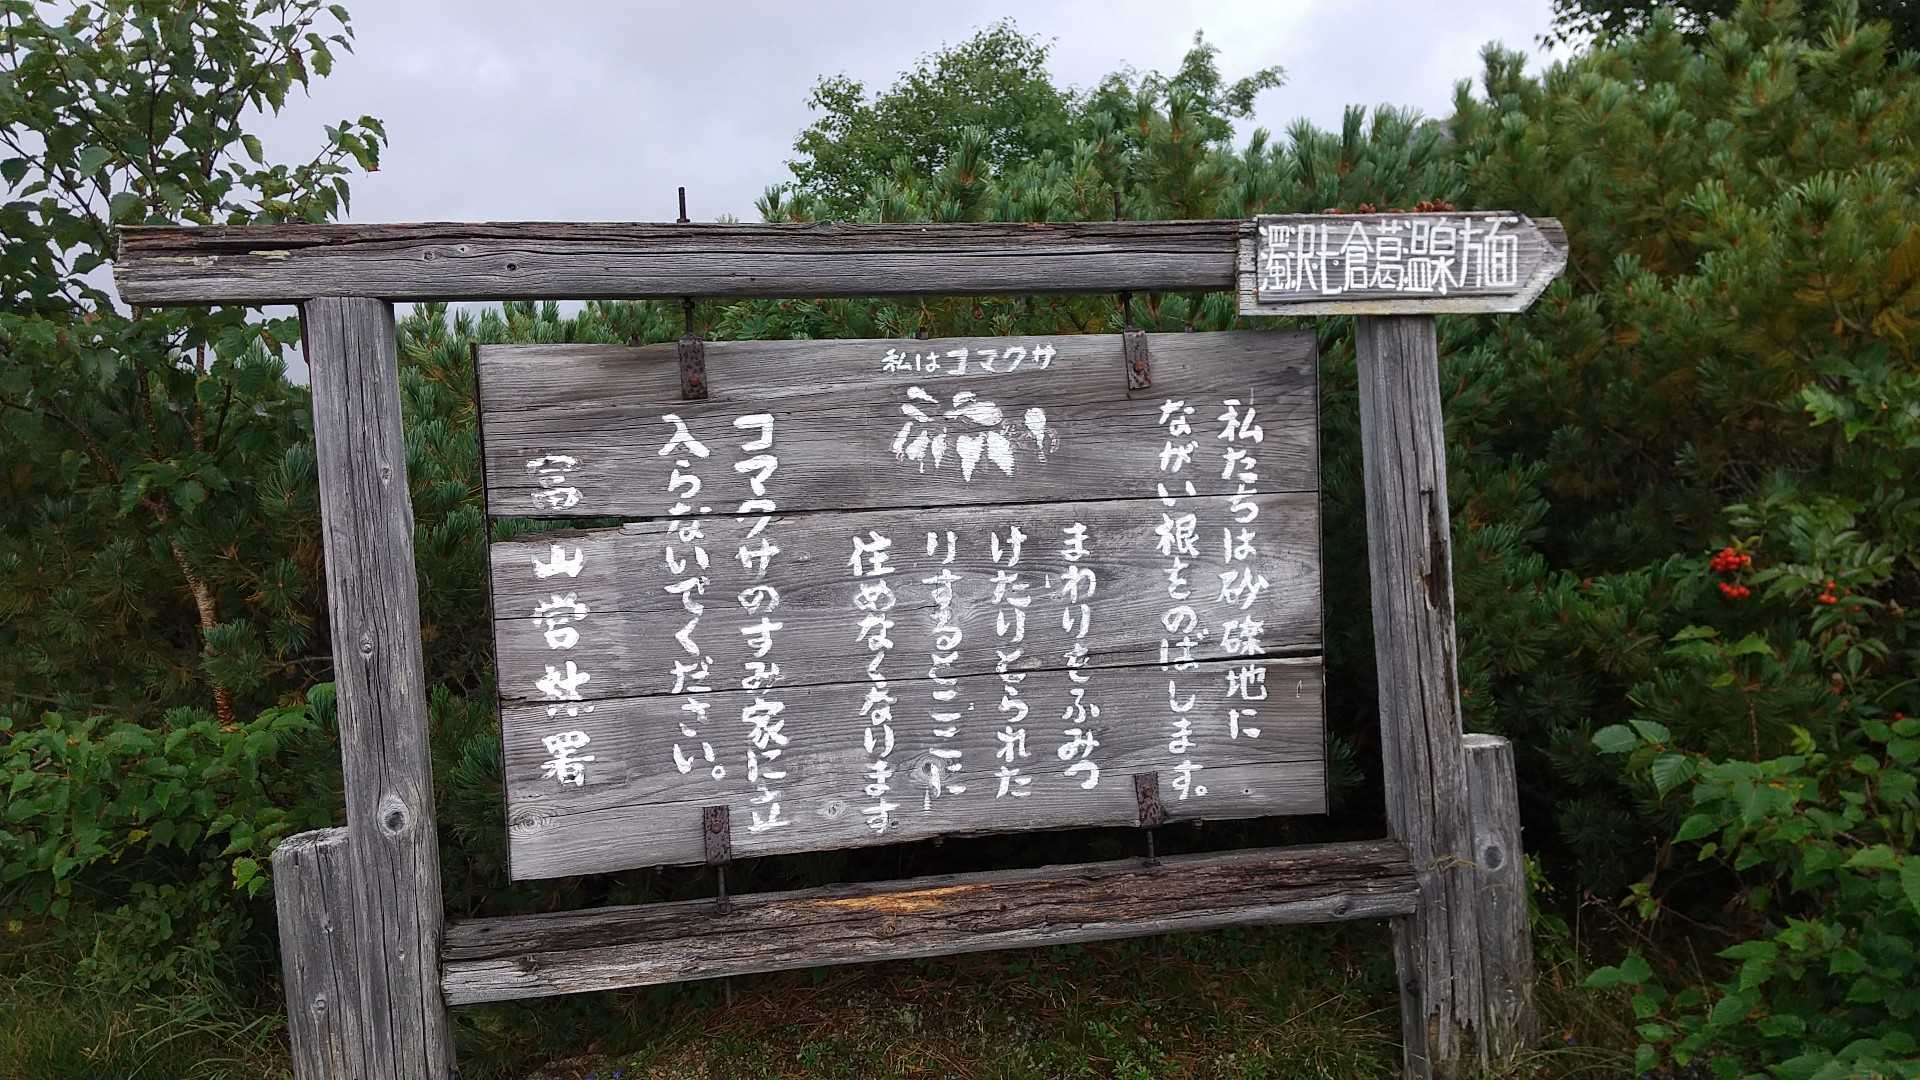 濁沢七倉葛温泉方面
私はコマクサ
私たちは砂礫地に
ながい根をのばします。
まわりをふみつ
けたりとられた
りするとここに
住めなくなります
コマクサのすみ家に立
入らないでください。
富山営林署